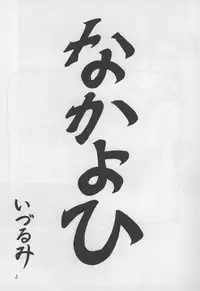 なかよひ
いづるみ